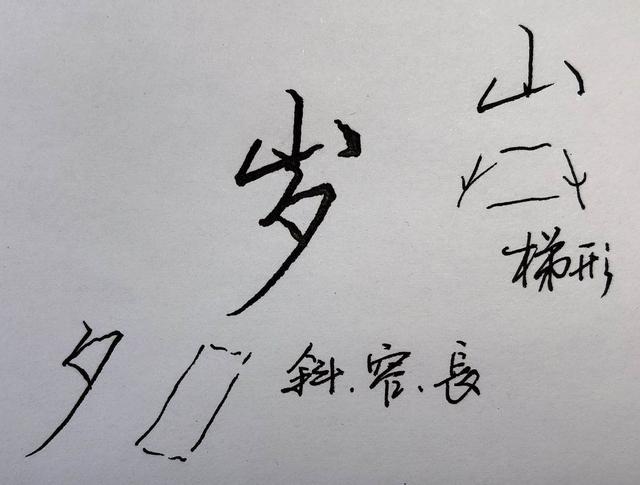 山
岁
梯形
夕
斜.窄.長